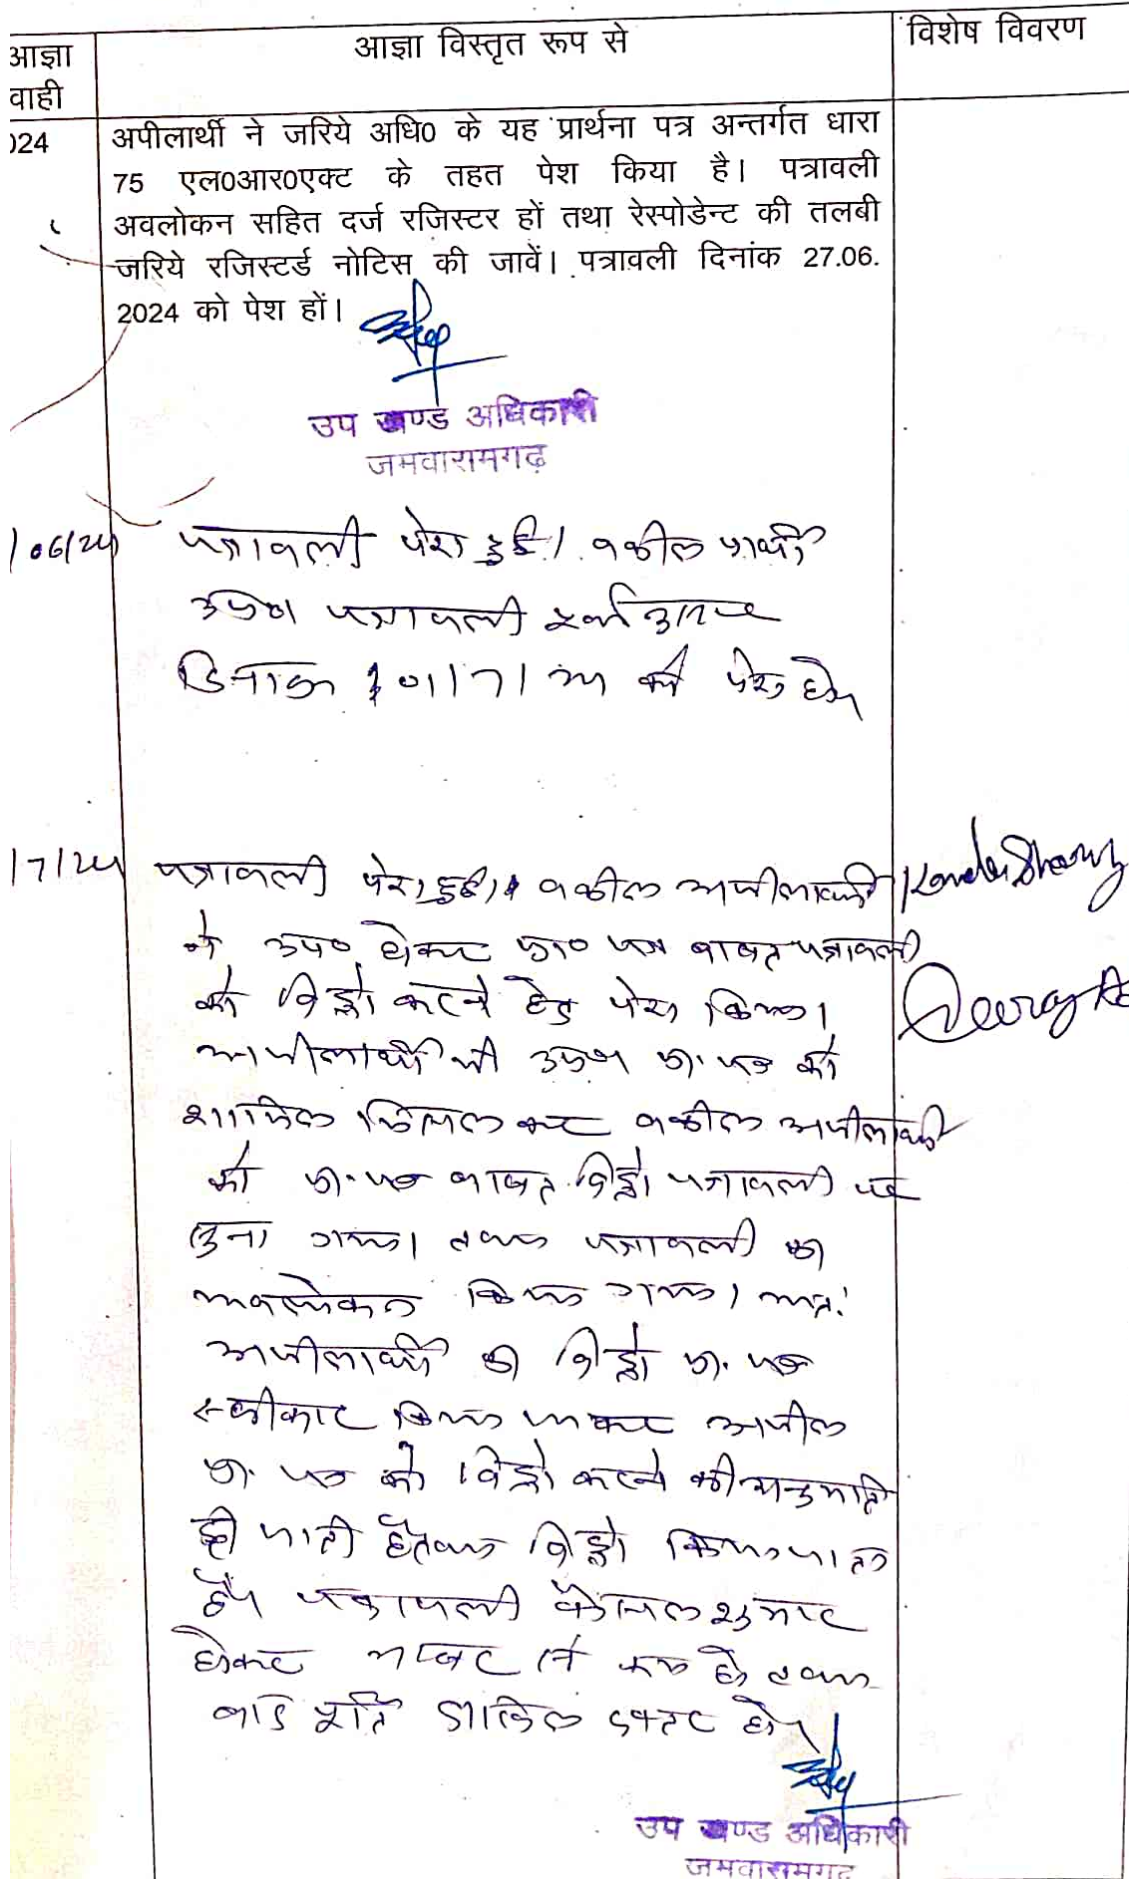 आज्ञा
वाही
आज्ञा विस्तृत रूप से
विशेष विवरण
024
अपीलार्थी ने जरिये अधि0 के यह प्रार्थना पत्र अन्तर्गत धारा
75 एल0आर0एक्ट के तहत पेश किया है। पत्रावली
अवलोकन सहित दर्ज रजिस्टर हों तथा रेस्पोडेन्ट की तलबी
जरिये रजिस्टर्ड नोटिस की जावें। पत्रावली दिनांक 27.06.
2024 को पेश हों।
उप खण्ड अधिकारी
जमवारामगढ़
/06/24
पत्रावली पेश हुई। वकील प्रार्थी
उप0 पत्रावली
दिनांक 01/7/24 को पेश हो।
/7/24
पत्रावली पेश हुई। वकील अपीलार्थी
ने उप0 होकर प्रा0 पत्र बाबत पत्रावली
को विड्रो करने हेतु पेश किया।
अपीलार्थी की प्रा. पत्र को
शामिल मिसल कर वकील अपीलार्थी
को प्रा. पत्र बाबत विड्रो पत्रावली पर
सुना गया। तथा पत्रावली का
अवलोकन किया गया। अतः
अपीलार्थी का विड्रो प्रा. पत्र
स्वीकार किया जाकर अपील
प्रा. पत्र को विड्रो करने की अनुमति
दी जाती है तथा विड्रो किया जाता
है। पत्रावली फैसल शुमार
होकर नम्बर से कम हो तथा
बाद दाखिल दफ्तर हो।
उप खण्ड अधिकारी
जमवारामगढ़